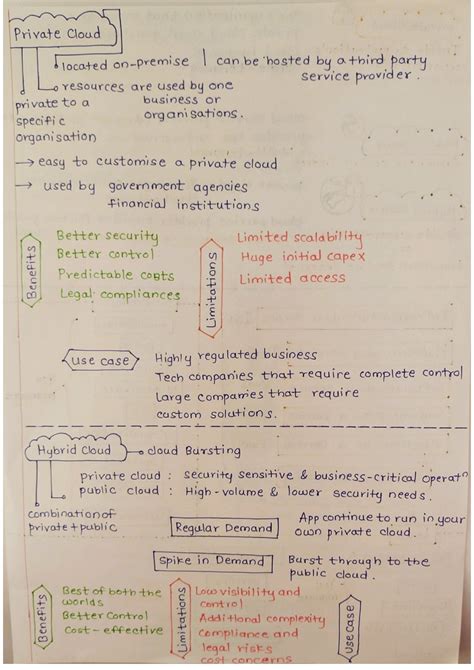 Private Cloud
located on-premise | can be hosted by a third party
service provider.
resources are used by one
business or
organisations.
private to a
specific
organisation
→ easy to customise a private cloud
→ used by government agencies
financial institutions
Benefits
Better security
Better control
Predictable costs
Legal compliances
Limitations
Limited scalability
Huge initial capex
Limited access
Use case
Highly regulated business
Tech companies that require complete control
Large companies that require
custom solutions.
Hybrid Cloud
cloud Bursting
private cloud : security sensitive & business-critical operatn
public cloud : High-volume & lower security needs.
combination of
private + public
Regular Demand
App continue to run in your
own private cloud.
Spike in Demand
Burst through to the
public cloud.
Benefits
Best of both the
worlds
Better Control
Cost-effective
Limitations
Low visibility and
control
Additional complexity
compliance and
legal risks
cost concerns
Use Case